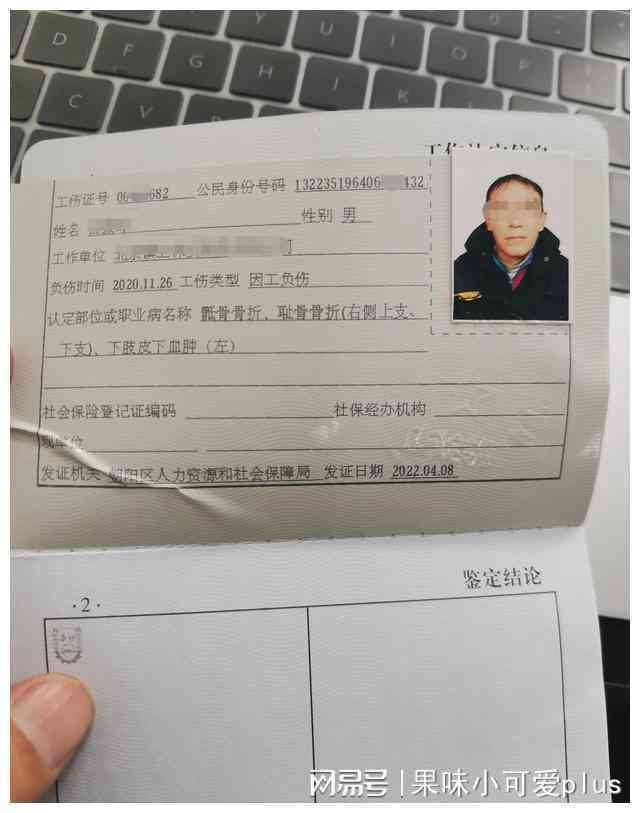 D F G H U I O J K C V B N
工伤证号 00 682 公民身份号码 132235196406 432
姓名 性别 男
工作单位
负伤时间 2020.11.26 工伤类型 因工负伤
认定部位或职业病名称 骶骨骨折、耻骨骨折(右侧上支、
下支)、下肢皮下血肿（左）
社会保险登记证编码 社保经办机构
现单位
发证机关 朝阳区人力资源和社会保障局 发证日期 2022.04.08
鉴定结论
·2·
网易号 | 果味小可爱plus